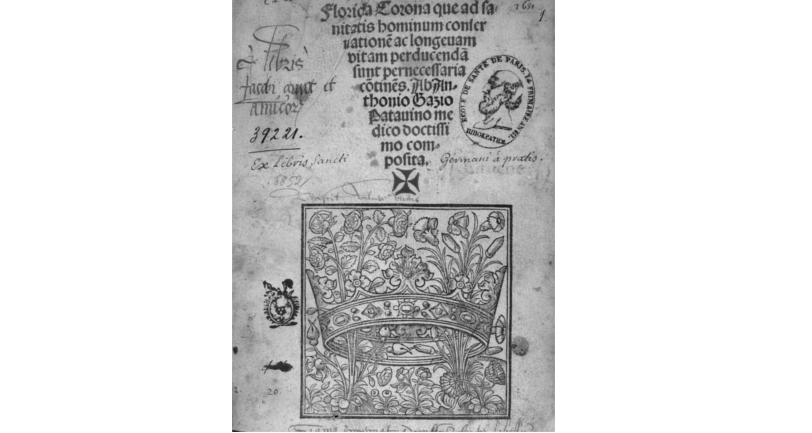 Florida Corona que ad sa-
nitatis hominum conser
vationē ac longeuam
vitam perducendā
sunt pernecessaria
cōtinēs. Ab An-
thonio Gazio
Patauino me
dico doctissi
mo com-
posita.
Ex libris
et
amicor
39221.
Ex Libris sancti
Germani à pratis.
ECOLE DE SANTÉ DE PARIS.
HIPPOKRATES
20
1